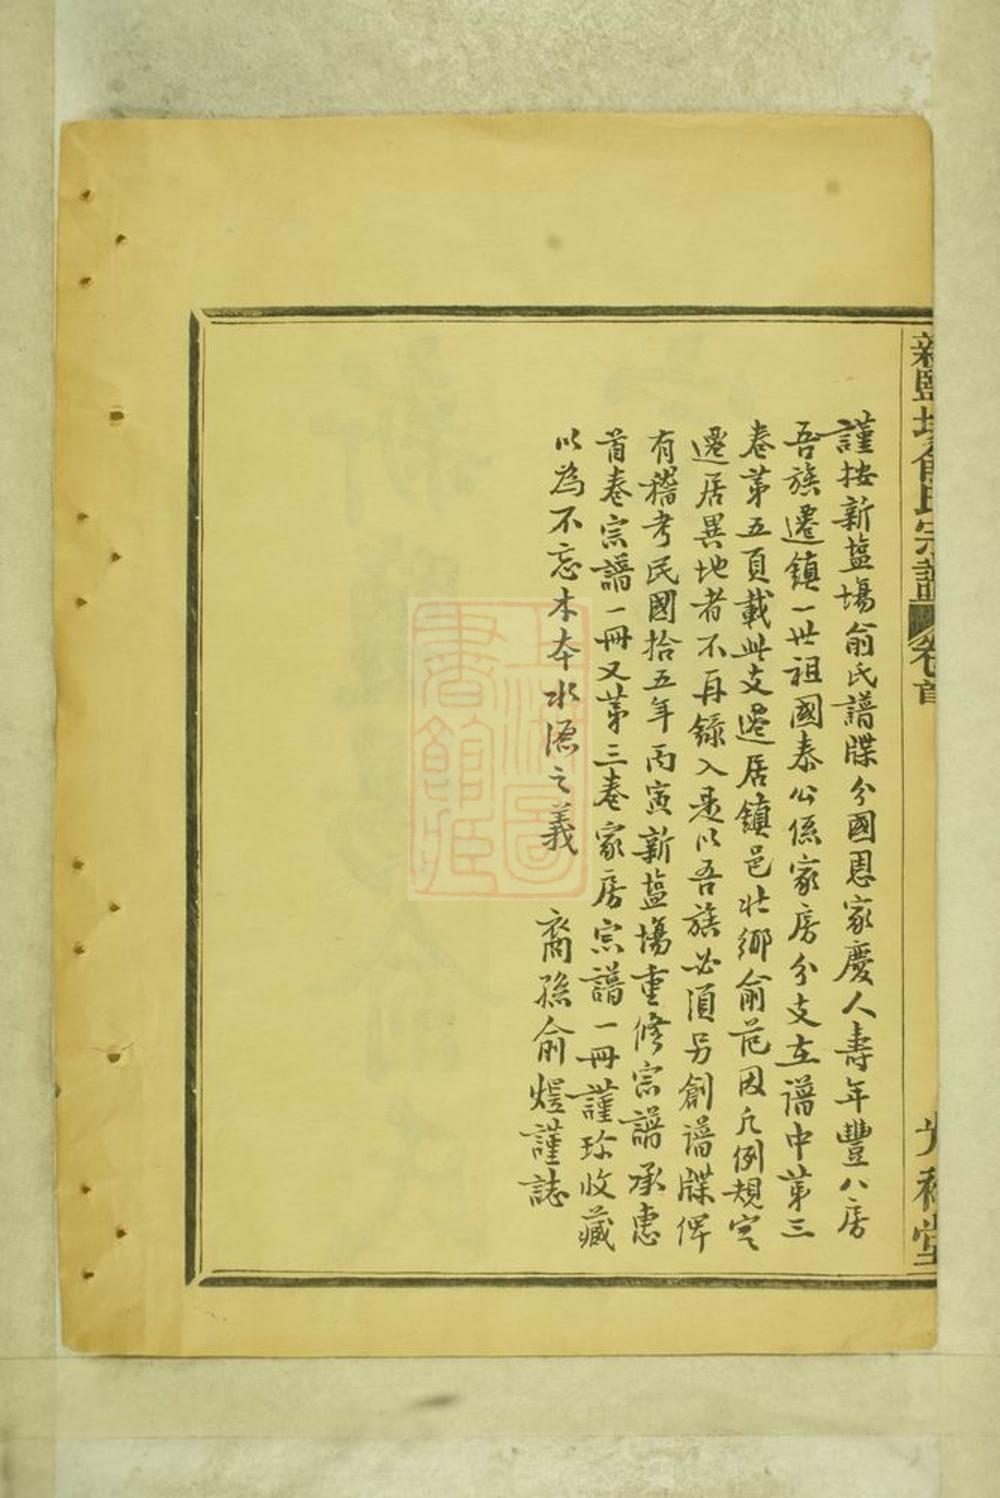 新鹽場俞氏宗譜 卷首
謹按新塩塲俞氏譜牒分國恩家慶人壽年豐八房
吾族遷鎮一世祖國泰公係家房分支在譜中第三
卷第五頁載此支遷居鎮邑壯鄉俞范因凡例規定
遷居異地者不再録入是以吾族必須另創譜牒俾
有稽考民國拾五年丙寅新塩塲重修宗譜承惠
首卷宗譜一冊又第三卷家房宗譜一冊謹珍收藏
以為不忘木本水源之義
裔孫俞煜謹誌
上海圖
書館藏